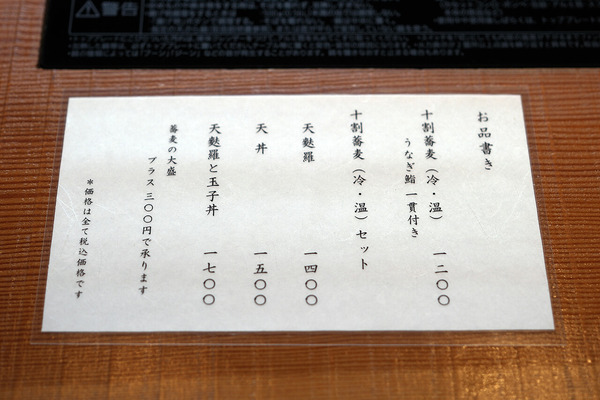 警告
お品書き
十割蕎麦（冷・温） 一二〇〇
うなぎ鮨 一貫付き
十割蕎麦（冷・温）セット
天麩羅 一四〇〇
天丼 一五〇〇
天麩羅と玉子丼 一七〇〇
蕎麦の大盛
プラス 三〇〇円で承ります
＊価格は全て税込価格です